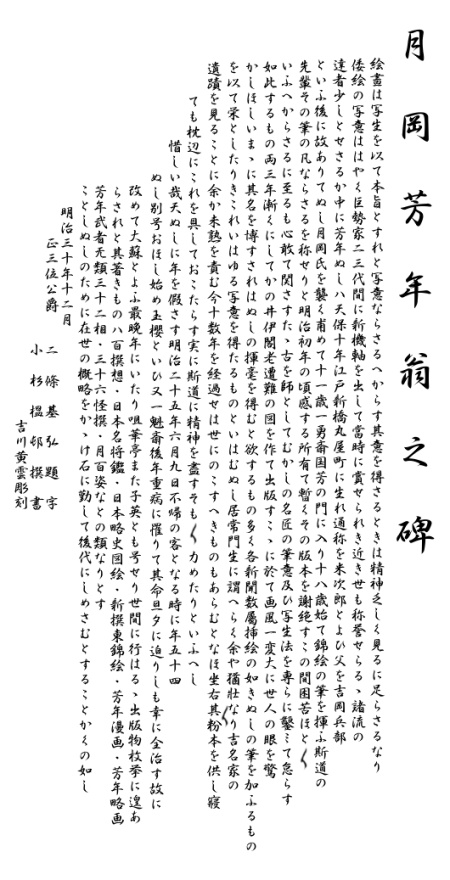 月岡芳年翁之碑
絵畫は写生を以て本旨とすれと写意ならさるへからす其意を得さるときは精神乏しく見るに足らさるなり
倭絵の写意ははやく巨勢家二三代間に新機軸を出して當時に賞せられき近き世も称誉せらるゝ諸流の
達者少しとせさるか中に芳年ぬしハ天保十年江戸新橋丸屋町に生れ通称を米次郎とよひ父を吉岡兵部
といふ後に故ありてぬし月岡氏を襲く甫めて十一歳一勇斎国芳の門に入り十八歳始て錦絵の筆を揮ふ斯道の
先輩その筆の凡ならさるを称せりと明治初年の頃感する所有て暫くその版本を謝絶すこの間困苦ほと〱
いふへからさるに至るも心敢て関さすたゝ古を師としてむかしの名匠の筆意及ひ写生法を専らに鑿ミて怠らす
如此するもの両三年漸くにしてかの井伊閣老遭難の図を作て出版すこゝに於て画風一変大に世人の眼を驚
かしほしいまゝに其名を博すされはぬしの揮毫を得むと欲するもの多く各新聞数屬挿絵の如きぬしの筆を加ふるもの
を以て栄としたりきこれいはゆる写意を得たるものといはむぬし居常門生に謂へらく余や猶壮なり吉名家の
遺蹟を見ることに余か未熟を責む今十数年を経過せは世にのこすへきものもあらむとなほ坐右其粉本を供し寝
ても枕辺にこれを具しておこたらす実に斯道に精神を盡すそも〱力めたりといふへし
惜しい哉天ぬしに年を假さす明治二十五年六月九日不帰の客となる時に年五十四
ぬし別号おほし始め玉櫻といひ又一魁斎後年重病に罹りて其命旦夕に迫りしも幸に全治す故に
改めて大蘇とよふ最晩年にいたり咀華亭また子英とも号せり世間に行はるゝ出版物枚挙に遑あ
らされと其著きもの八百撰想・日本名将鑑・日本略史図絵・新撰東錦絵・芳年漫画・芳年略画
芳年武者无類三十二相・三十六怪撰・月百姿なとの類なりとす
ことしぬしのために在世の概略をかゝけ石に勒して後代にしめさむとすることかくの如し
明治三十年十二月
正三位公爵 二條基弘題字
小杉榲邨撰書
吉川黄雲彫刻